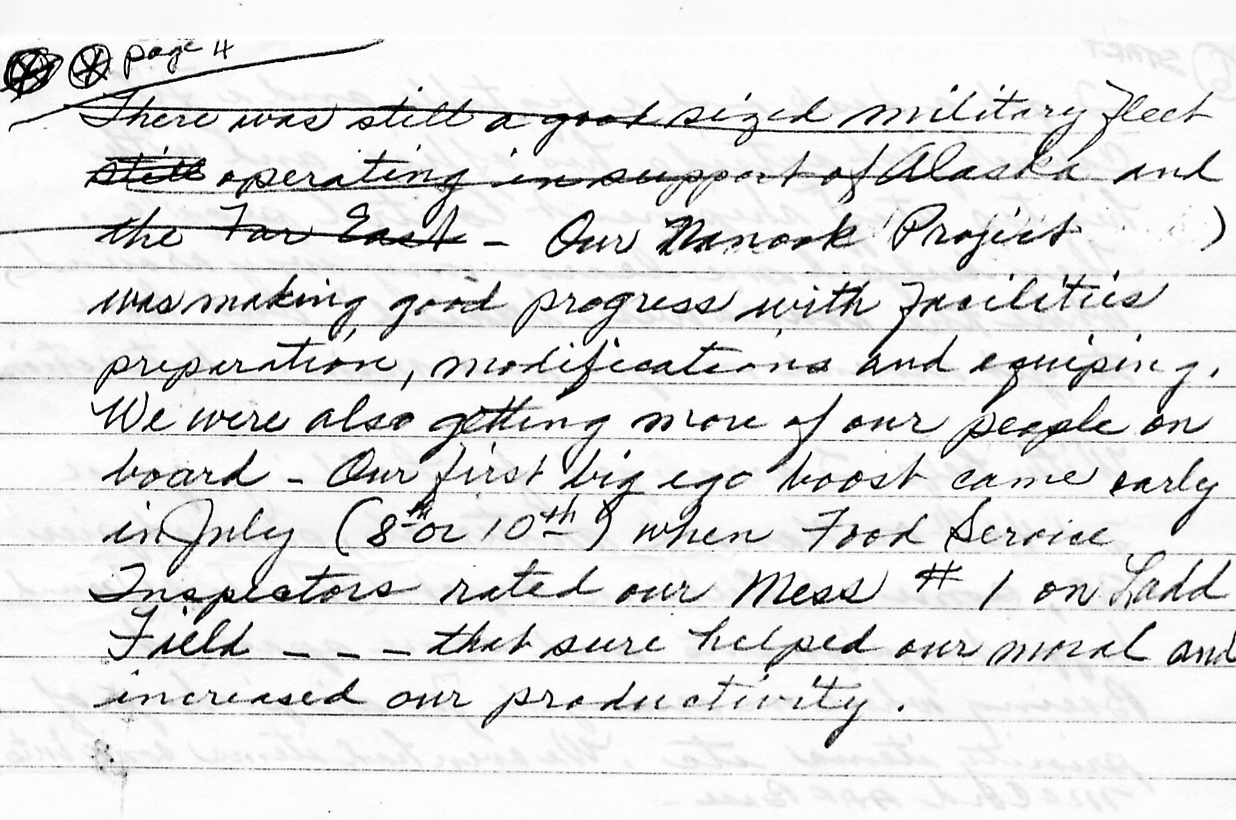 page 4
There was still a good sized military fleet
still operating in support of Alaska and
the Far East - Our Nanook Project )
was making good progress with facilities
preparation, modifications and equiping.
We were also getting more of our people on
board - Our first big ego boost came early
in July (8th or 10th) when Food Service
Inspectors rated our Mess # 1 on Ladd
Field - - - that sure helped our moral and
increased our productivity.